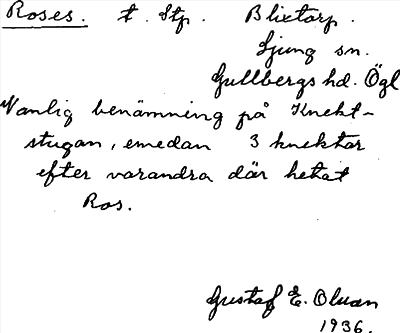 Roses. t. Stp. Blixtorp.
Ljung sn.
Gullbergs hd. Ögl
Vanlig benämning på Knekt-
stugan, emedan 3 knektar
efter varandra där hetat
Ros.
Gustaf E. Olsson
1936.